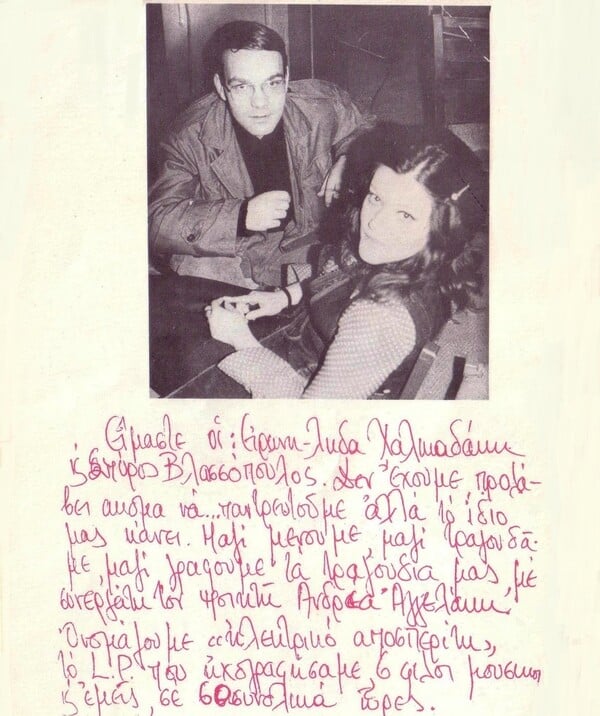 Εἴμαστε οἱ: Εἰρήνη-Λήδα Χαλκιαδάκη
κ Σπύρος Βλασσόπουλος. Δὲν ἔχουμε προλά-
βει ακόμα νὰ... παντρευτοῦμε ἀλλὰ τὸ ἴδιο
μας κάνει. Μαζὶ μένουμε, μαζὶ τραγουδᾶ-
με, μαζὶ γράφουμε τὰ τραγούδια μας μὲ
συνεργάτη τὸν φοιτητὴ Ἀνδρέα Ἀγγελάκη.
Ὀνομάζουμε «ἠλεκτρικὸ ἀποσπερίτη»,
τὸ L.P. ποὺ ἠχογραφήσαμε, 6 φίλοι μουσικοὶ
κ ἐμεῖς, σὲ 50 συνολικὰ ὧρες.